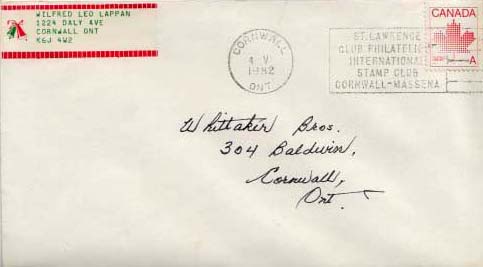 WILFRED LEO LAPPAN
1224 DALY AVE
CORNWALL ONT
K6J 4W2
CORNWALL
4 V
1982
ONT.
ST. LAWRENCE
CLUB PHILATELIQUE
INTERNATIONAL
STAMP CLUB
CORNWALL-MASSENA
CANADA
A
Whittaker Bros.
304 Baldwin,
Cornwall,
Ont.